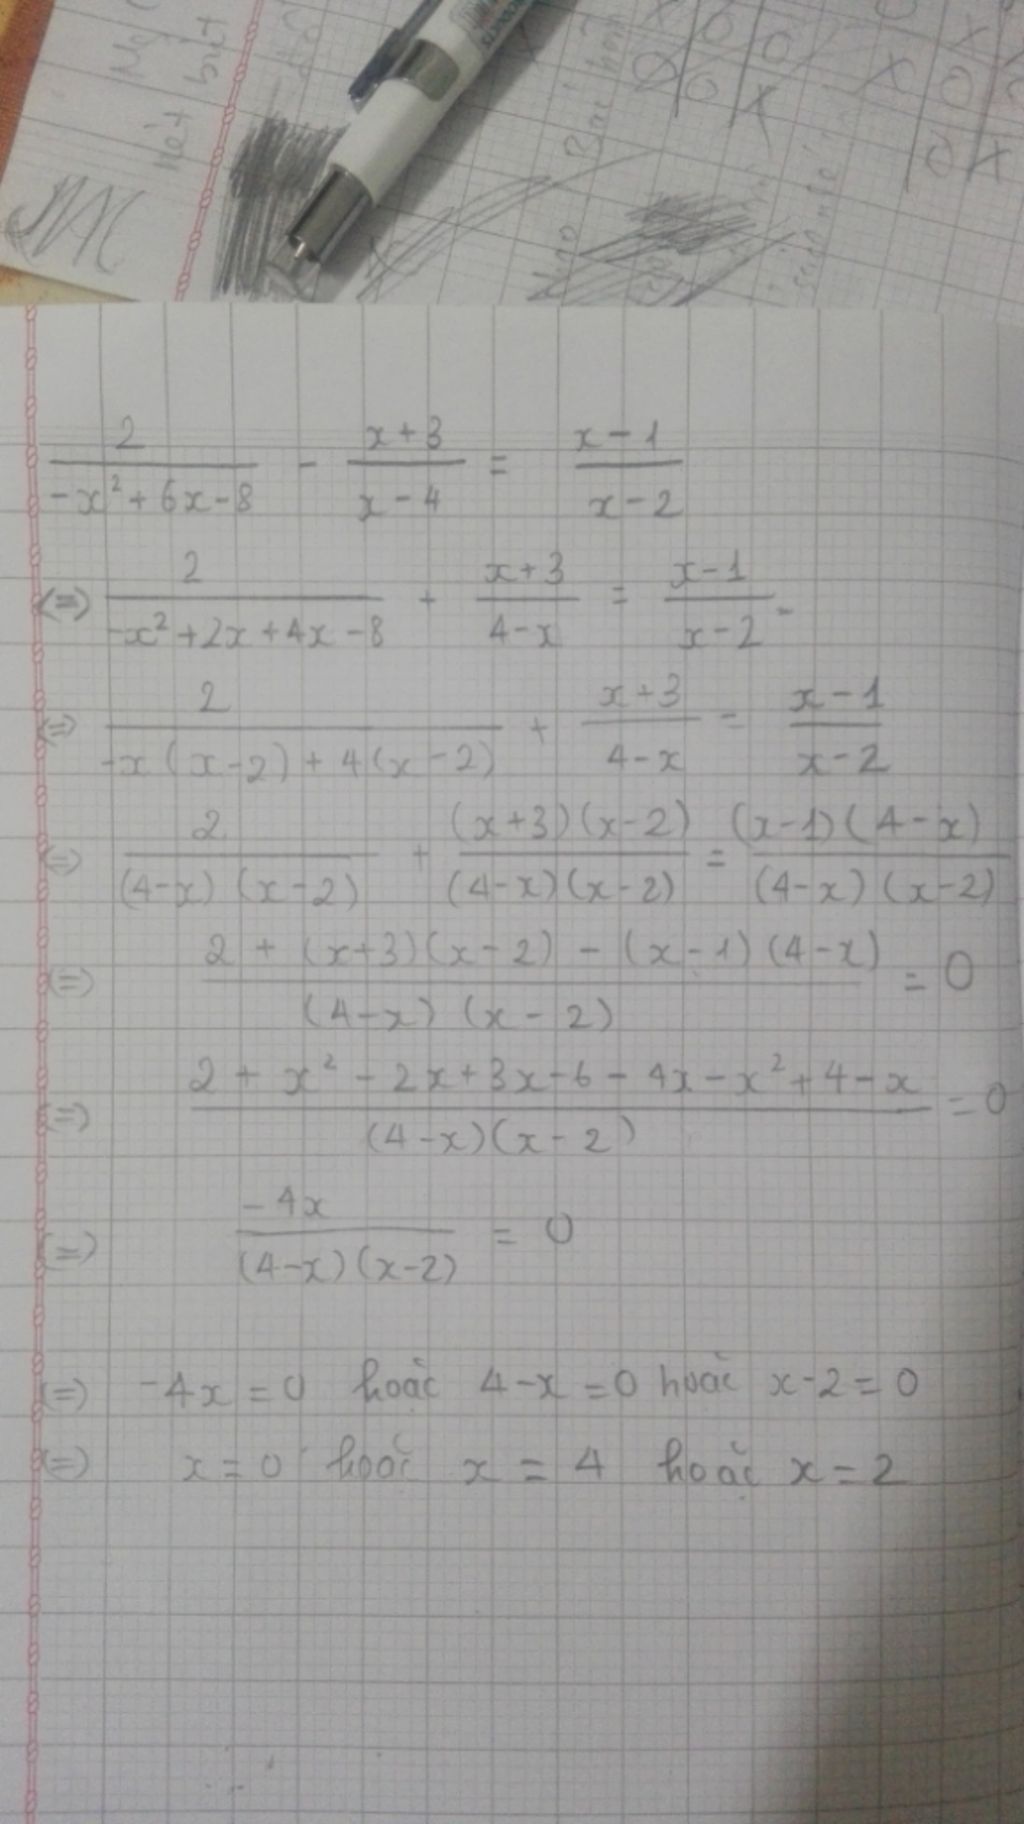 Nét biết
2/(-x² + 6x - 8) - (x+3)/(x-4) = (x-1)/(x-2)
(=) 2/(-x² + 2x + 4x - 8) + (x+3)/(4-x) = (x-1)/(x-2)
(=) 2/(-x(x-2) + 4(x-2)) + (x+3)/(4-x) = (x-1)/(x-2)
(=) 2/((4-x)(x-2)) + ((x+3)(x-2))/((4-x)(x-2)) = ((x-1)(4-x))/((4-x)(x-2))
(=) (2 + (x+3)(x-2) - (x-1)(4-x))/((4-x)(x-2)) = 0
(=) (2 + x² - 2x + 3x - 6 - 4x - x² + 4 - x)/((4-x)(x-2)) = 0
(=) (-4x)/((4-x)(x-2)) = 0
(=) -4x = 0 hoặc 4-x = 0 hoặc x-2 = 0
(=) x = 0 hoặc x = 4 hoặc x = 2